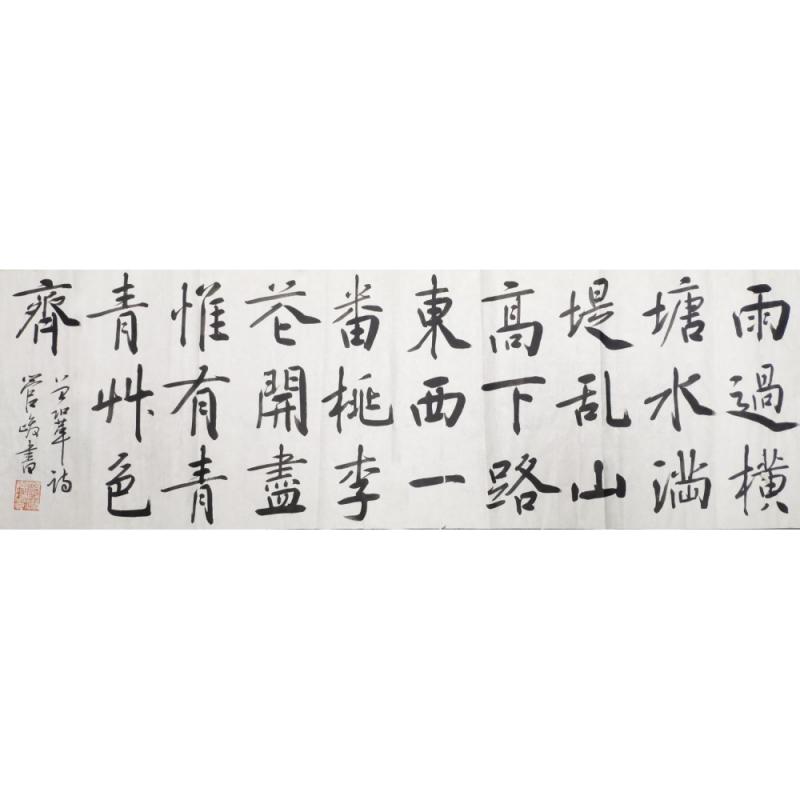 雨過橫
塘水滿
堤乱山
髙下路
東西一
番桃李
花開盡
惟有青
青艸色
齊
曾鞏诗
管峻書